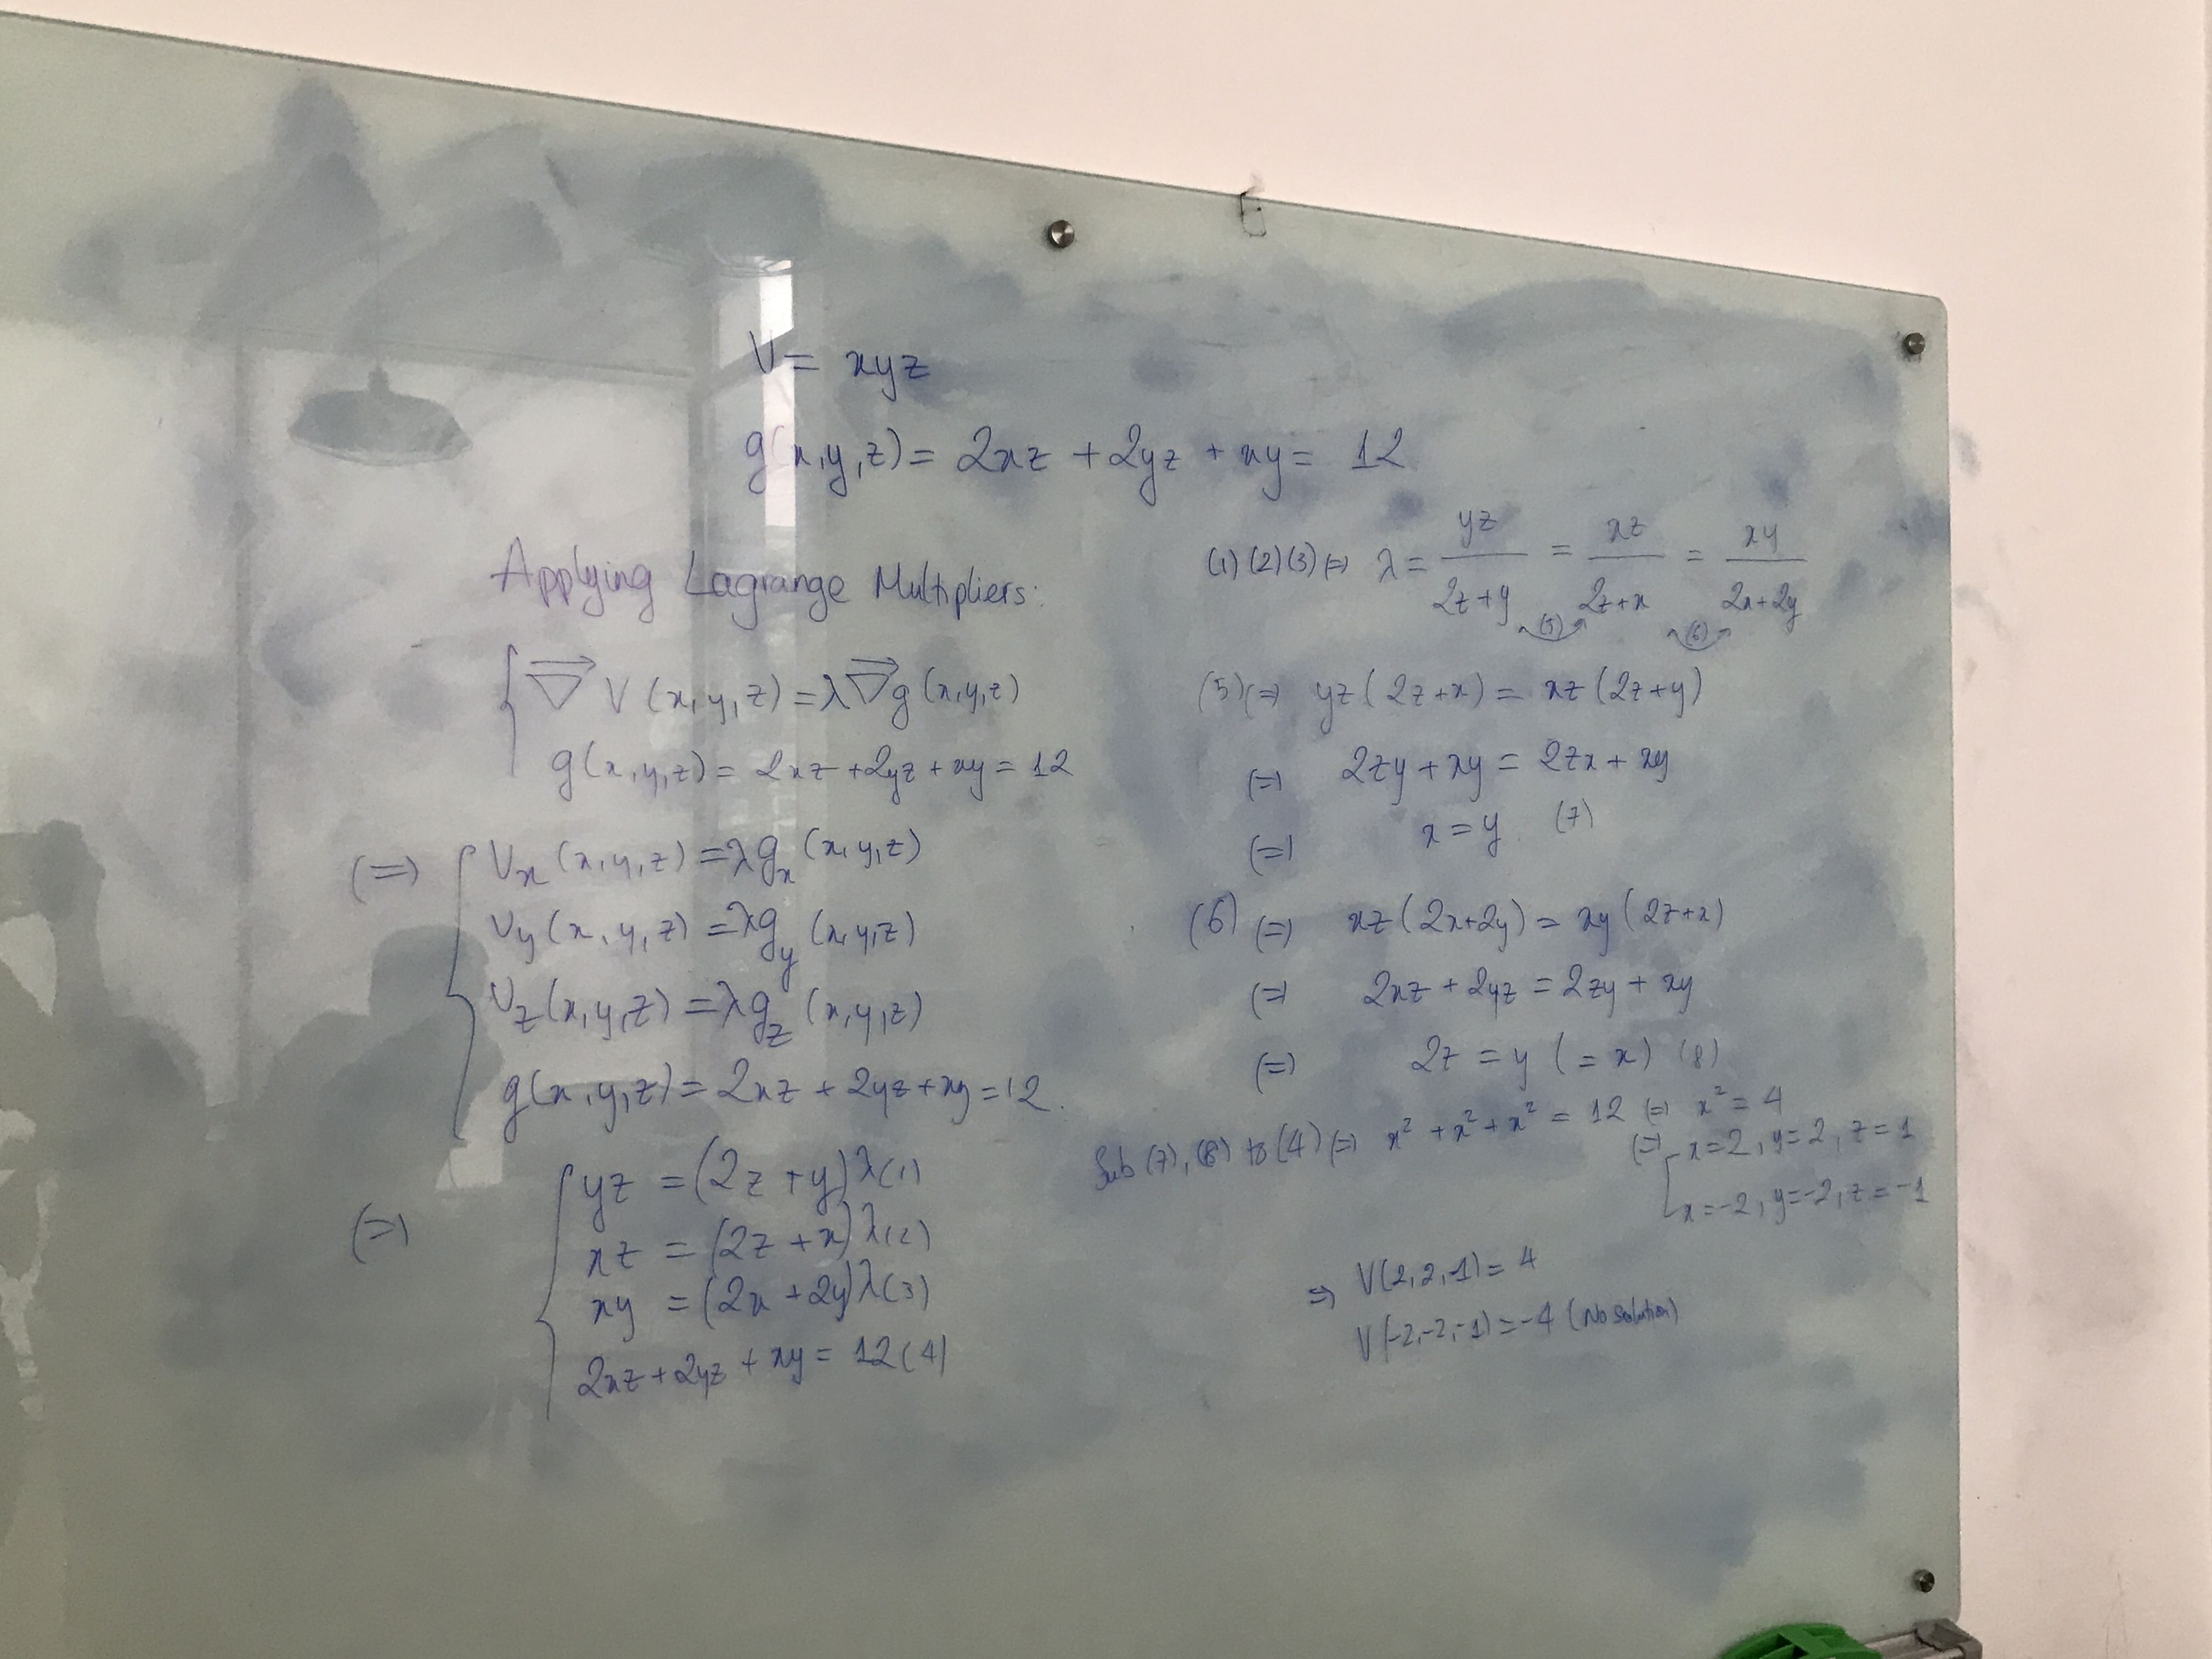 V = xyz
g(x,y,z) = 2xz + 2yz + xy = 12
Applying Lagrange Multipliers:
∇V(x,y,z) = λ∇g(x,y,z)
g(x,y,z) = 2xz + 2yz + xy = 12
(=) Vx(x,y,z) = λgx(x,y,z)
Vy(x,y,z) = λgy(x,y,z)
Vz(x,y,z) = λgz(x,y,z)
g(x,y,z) = 2xz + 2yz + xy = 12.
(=) yz = (2z + y)λ (1)
xz = (2z + x)λ (2)
xy = (2x + 2y)λ (3)
2xz + 2yz + xy = 12 (4)
(1)(2)(3) (=) λ = yz/(2z+y) = xz/(2z+x) = xy/(2x+2y)
(5) (6)
(5) (=) yz(2z+x) = xz(2z+y)
(=) 2zy + xy = 2zx + xy
(=) x = y (7)
(6) (=) xz(2x+2y) = xy(2z+x)
(=) 2xz + 2yz = 2zy + xy
(=) 2z = y (= x) (8)
Sub (7), (8) to (4) (=) x² + x² + x² = 12 (=) x² = 4
(=) x=2, y=2, z=1
x=-2, y=-2, z=-1
=> V(2,2,1) = 4
V(-2,-2,-1) = -4 (No solution)